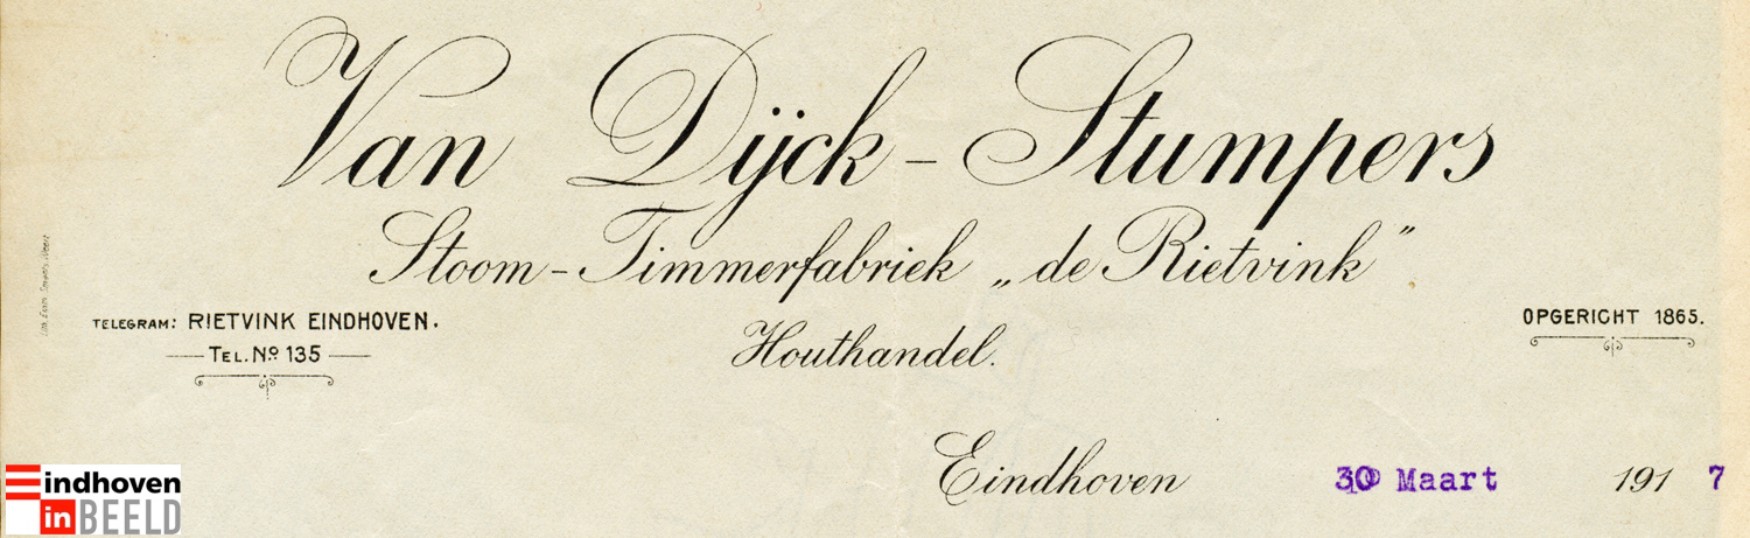 Van Dijck-Stumpers
Stoom-Timmerfabriek „de Rietvink”
TELEGRAM: RIETVINK EINDHOVEN.
TEL. No 135
Houthandel.
OPGERICHT 1865.
Eindhoven 30 Maart 1917
Eindhoven
in BEELD